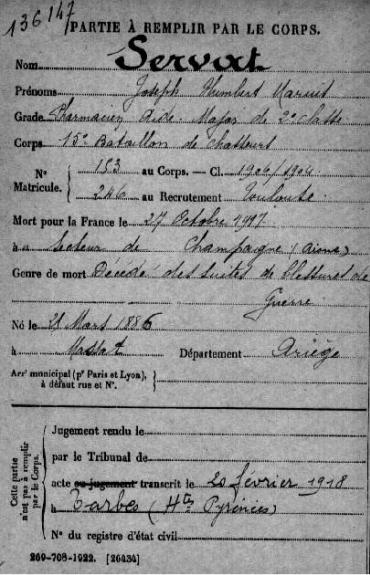 136147
PARTIE À REMPLIR PAR LE CORPS.
Nom Servat
Prénoms Joseph Humbert
Grade Pharmacien Aide Major de 2e classe
Corps 15e Bataillon de chasseurs
N° Matricule. 153 au Corps. — Cl. 1906/1904
246 au Recrutement Toulouse
Mort pour la France le 27 Octobre 1917
à Secteur de Champagne (Aisne)
Genre de mort Décédé des suites de blessures de
Guerre
Né le 28 Mars 1886
à Massat Département Ariège
Arrt municipal (pr Paris et Lyon),
à défaut rue et N°.
Cette partie n'est pas à remplir par le Corps.
Jugement rendu le
par le Tribunal de
acte ou jugement transcrit le 20 février 1918
à Tarbes (Htes Pyrénées)
N° du registre d'état civil
269-708-1922. [26434]